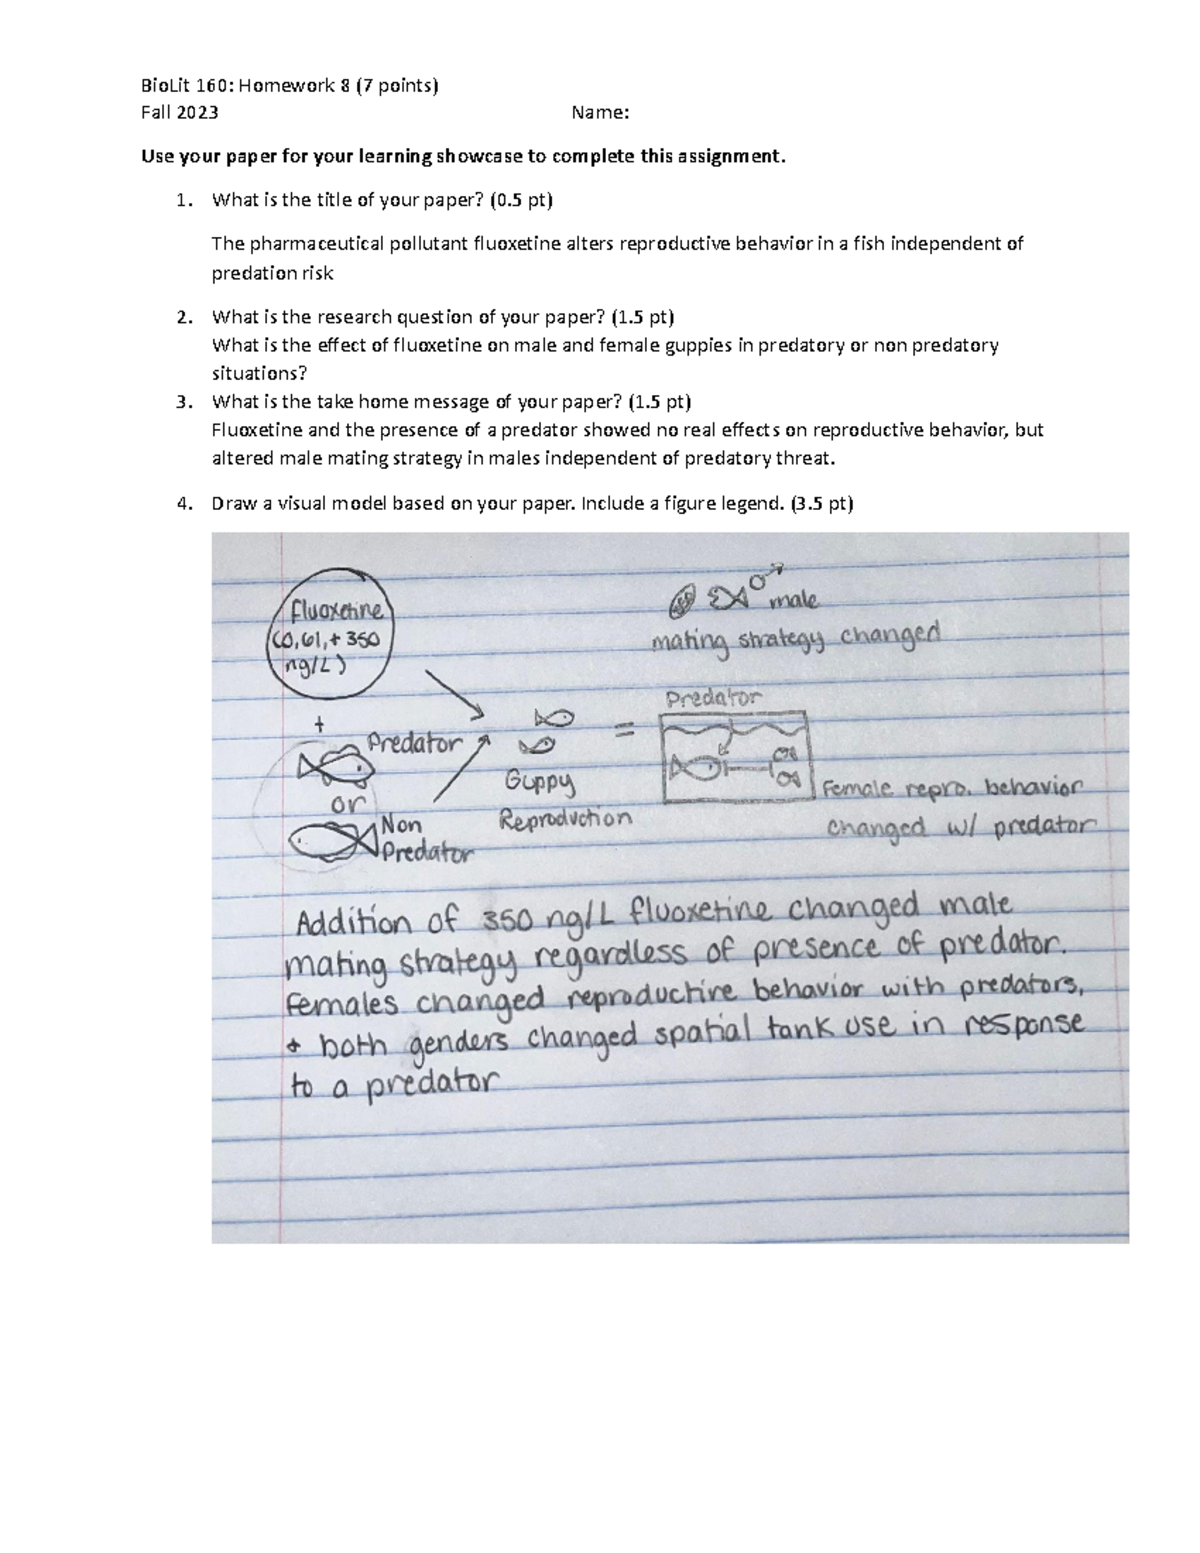 BioLit 160: Homework 8 (7 points)
Fall 2023 Name:
Use your paper for your learning showcase to complete this assignment.
1. What is the title of your paper? (0.5 pt)
The pharmaceutical pollutant fluoxetine alters reproductive behavior in a fish independent of
predation risk
2. What is the research question of your paper? (1.5 pt)
What is the effect of fluoxetine on male and female guppies in predatory or non predatory
situations?
3. What is the take home message of your paper? (1.5 pt)
Fluoxetine and the presence of a predator showed no real effects on reproductive behavior, but
altered male mating strategy in males independent of predatory threat.
4. Draw a visual model based on your paper. Include a figure legend. (3.5 pt)
fluoxetine
(0,61,+ 350
ng/L)
+
Predator
or
Non
Predator
Guppy
Reproduction
=
male
mating strategy changed
Predator
Female repro. behavior
changed w/ predator
Addition of 350 ng/L fluoxetine changed male
mating strategy regardless of presence of predator.
females changed reproductive behavior with predators,
+ both genders changed spatial tank use in response
to a predator